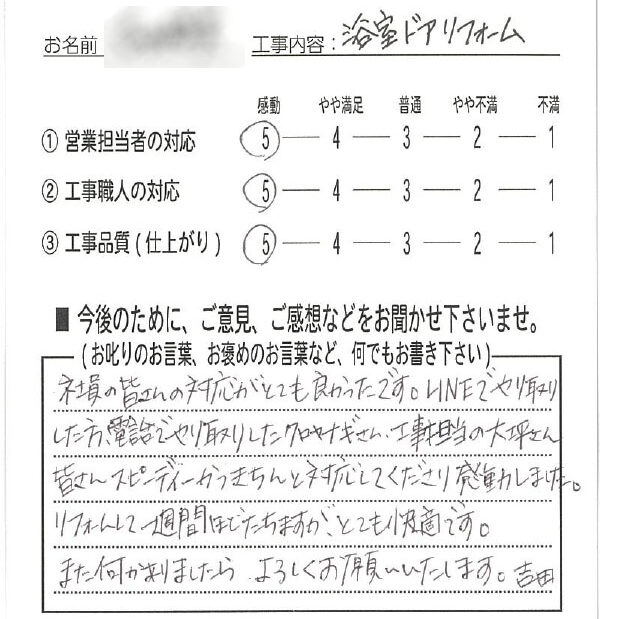 お名前 工事内容：浴室ドアリフォーム
感動 やや満足 普通 やや不満 不満
① 営業担当者の対応 5 ― 4 ― 3 ― 2 ― 1
② 工事職人の対応 5 ― 4 ― 3 ― 2 ― 1
③ 工事品質（仕上がり） 5 ― 4 ― 3 ― 2 ― 1
■ 今後のために、ご意見、ご感想などをお聞かせ下さいませ。
（お叱りのお言葉、お褒めのお言葉など、何でもお書き下さい）
社員の皆さんの対応がとても良かったです。LINEでやり取り
した方、電話でやり取りしたクロヤナギさん、工事担当の大坪さん
皆さんスピーディーかつきちんと対応してくださり感動しました。
リフォームして一週間ほどたちますが、とても快適です。
また何かありましたら よろしくお願いいたします。吉田